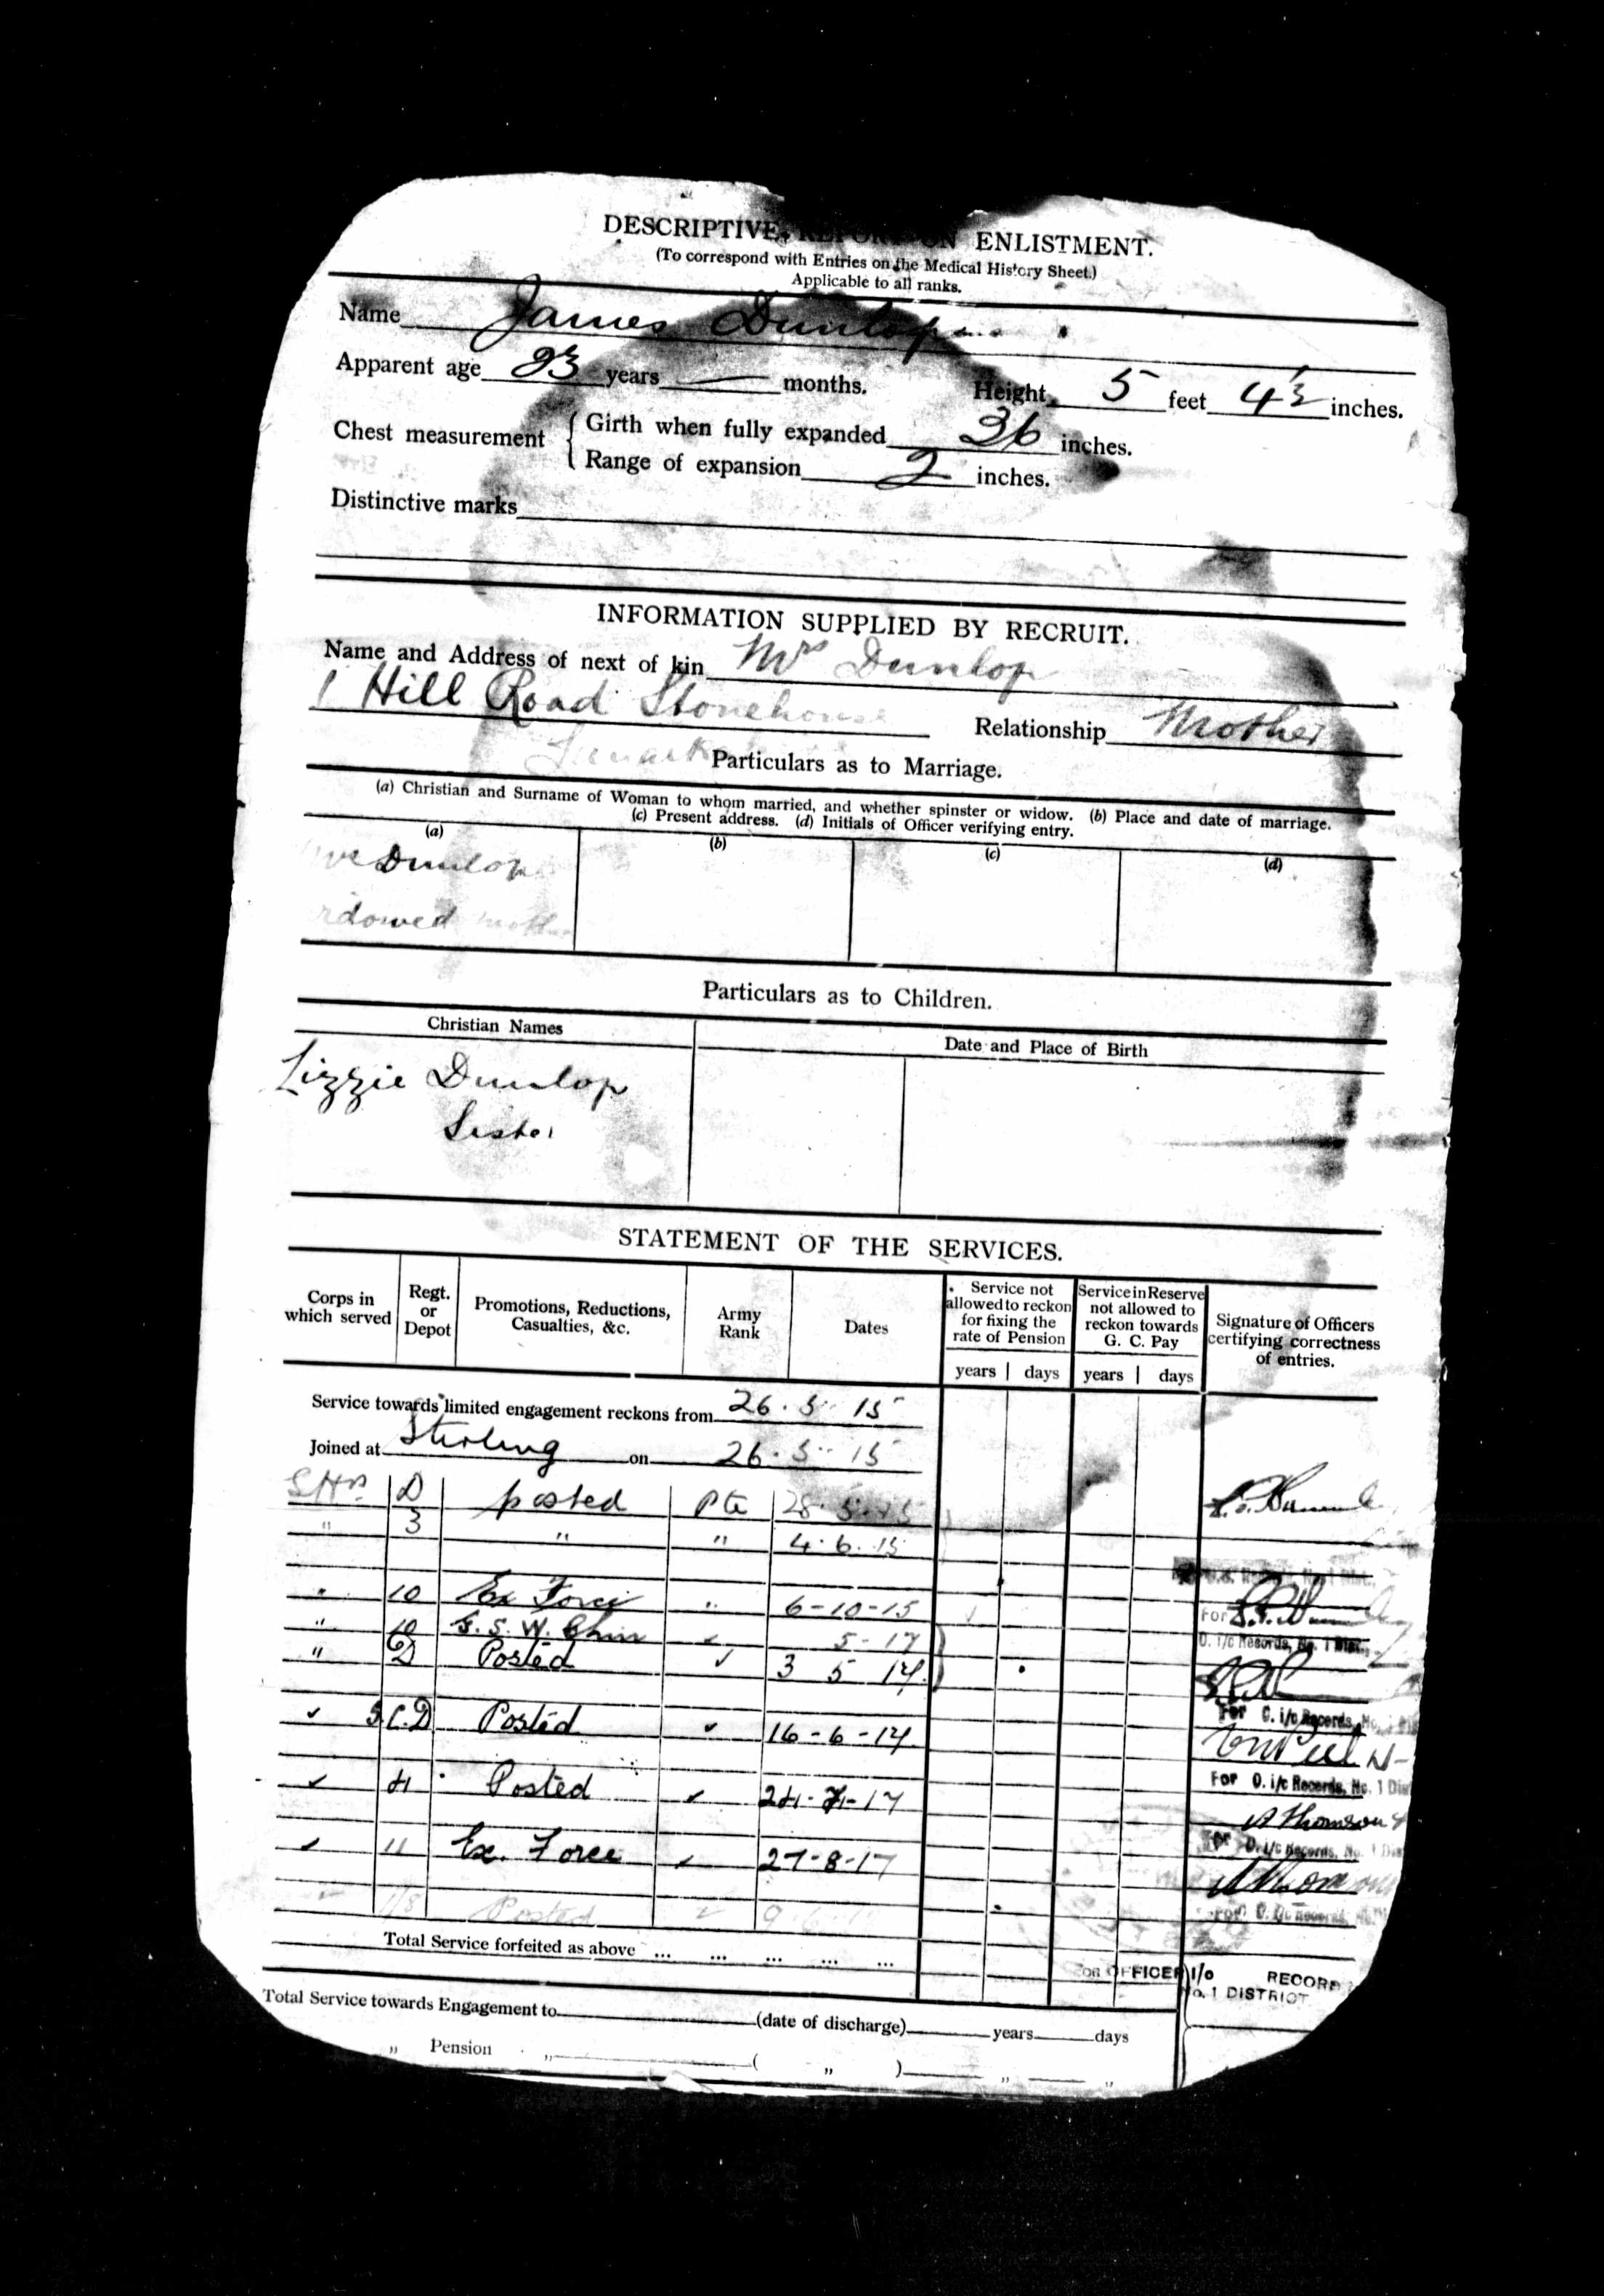 DESCRIPTIVE REPORT ON ENLISTMENT.
(To correspond with Entries on the Medical History Sheet.)
Applicable to all ranks.
Name James Dunlop
Apparent age 23 years — months. Height 5 feet 4½ inches.
Chest measurement { Girth when fully expanded 36 inches.
Range of expansion 2 inches.
Distinctive marks
INFORMATION SUPPLIED BY RECRUIT.
Name and Address of next of kin Mrs Dunlop
1 Hill Road Stonehouse Relationship Mother
Lanark
Particulars as to Marriage.
(a) Christian and Surname of Woman to whom married, and whether spinster or widow. (b) Place and date of marriage.
(c) Present address. (d) Initials of Officer verifying entry.
(a) (b) (c) (d)
Dunlop
dowed mother
Particulars as to Children.
Christian Names Date and Place of Birth
Lizzie Dunlop
Sister
STATEMENT OF THE SERVICES.
Corps in which served Regt. or Depot Promotions, Reductions, Casualties, &c. Army Rank Dates Service not allowed to reckon for fixing the rate of Pension Service in Reserve not allowed to reckon towards G. C. Pay Signature of Officers certifying correctness of entries.
years days years days
Service towards limited engagement reckons from 26. 5. 15
Joined at Stirling on 26. 5. 15
S Hrs D posted Pte 28. 5. 15
" 3 " " 4. 6. 15
" 10 Ex Force " 6-10-15
For
" 10 G. S. W. 5-17
O. i/c Records, No. 1 Dist.
" D Posted ✓ 3 5 17
For O. i/c Records, No. 1 Dis
✓ 3.C.D Posted ✓ 16-6-17
For O. i/c Records, No. 1 Dis
✓ 4 Posted ✓ 24-7-17
A Thomson
For O. i/c Records, No. 1 Dis
✓ 11 Ex. Force ✓ 27-8-17
For O. i/c Records
1/8 Posted 9 6
Total Service forfeited as above ... ... ... ... ...
FOR OFFICER I/c RECORD
No. 1 DISTRICT
Total Service towards Engagement to (date of discharge) years days
" Pension " ( " ) " "